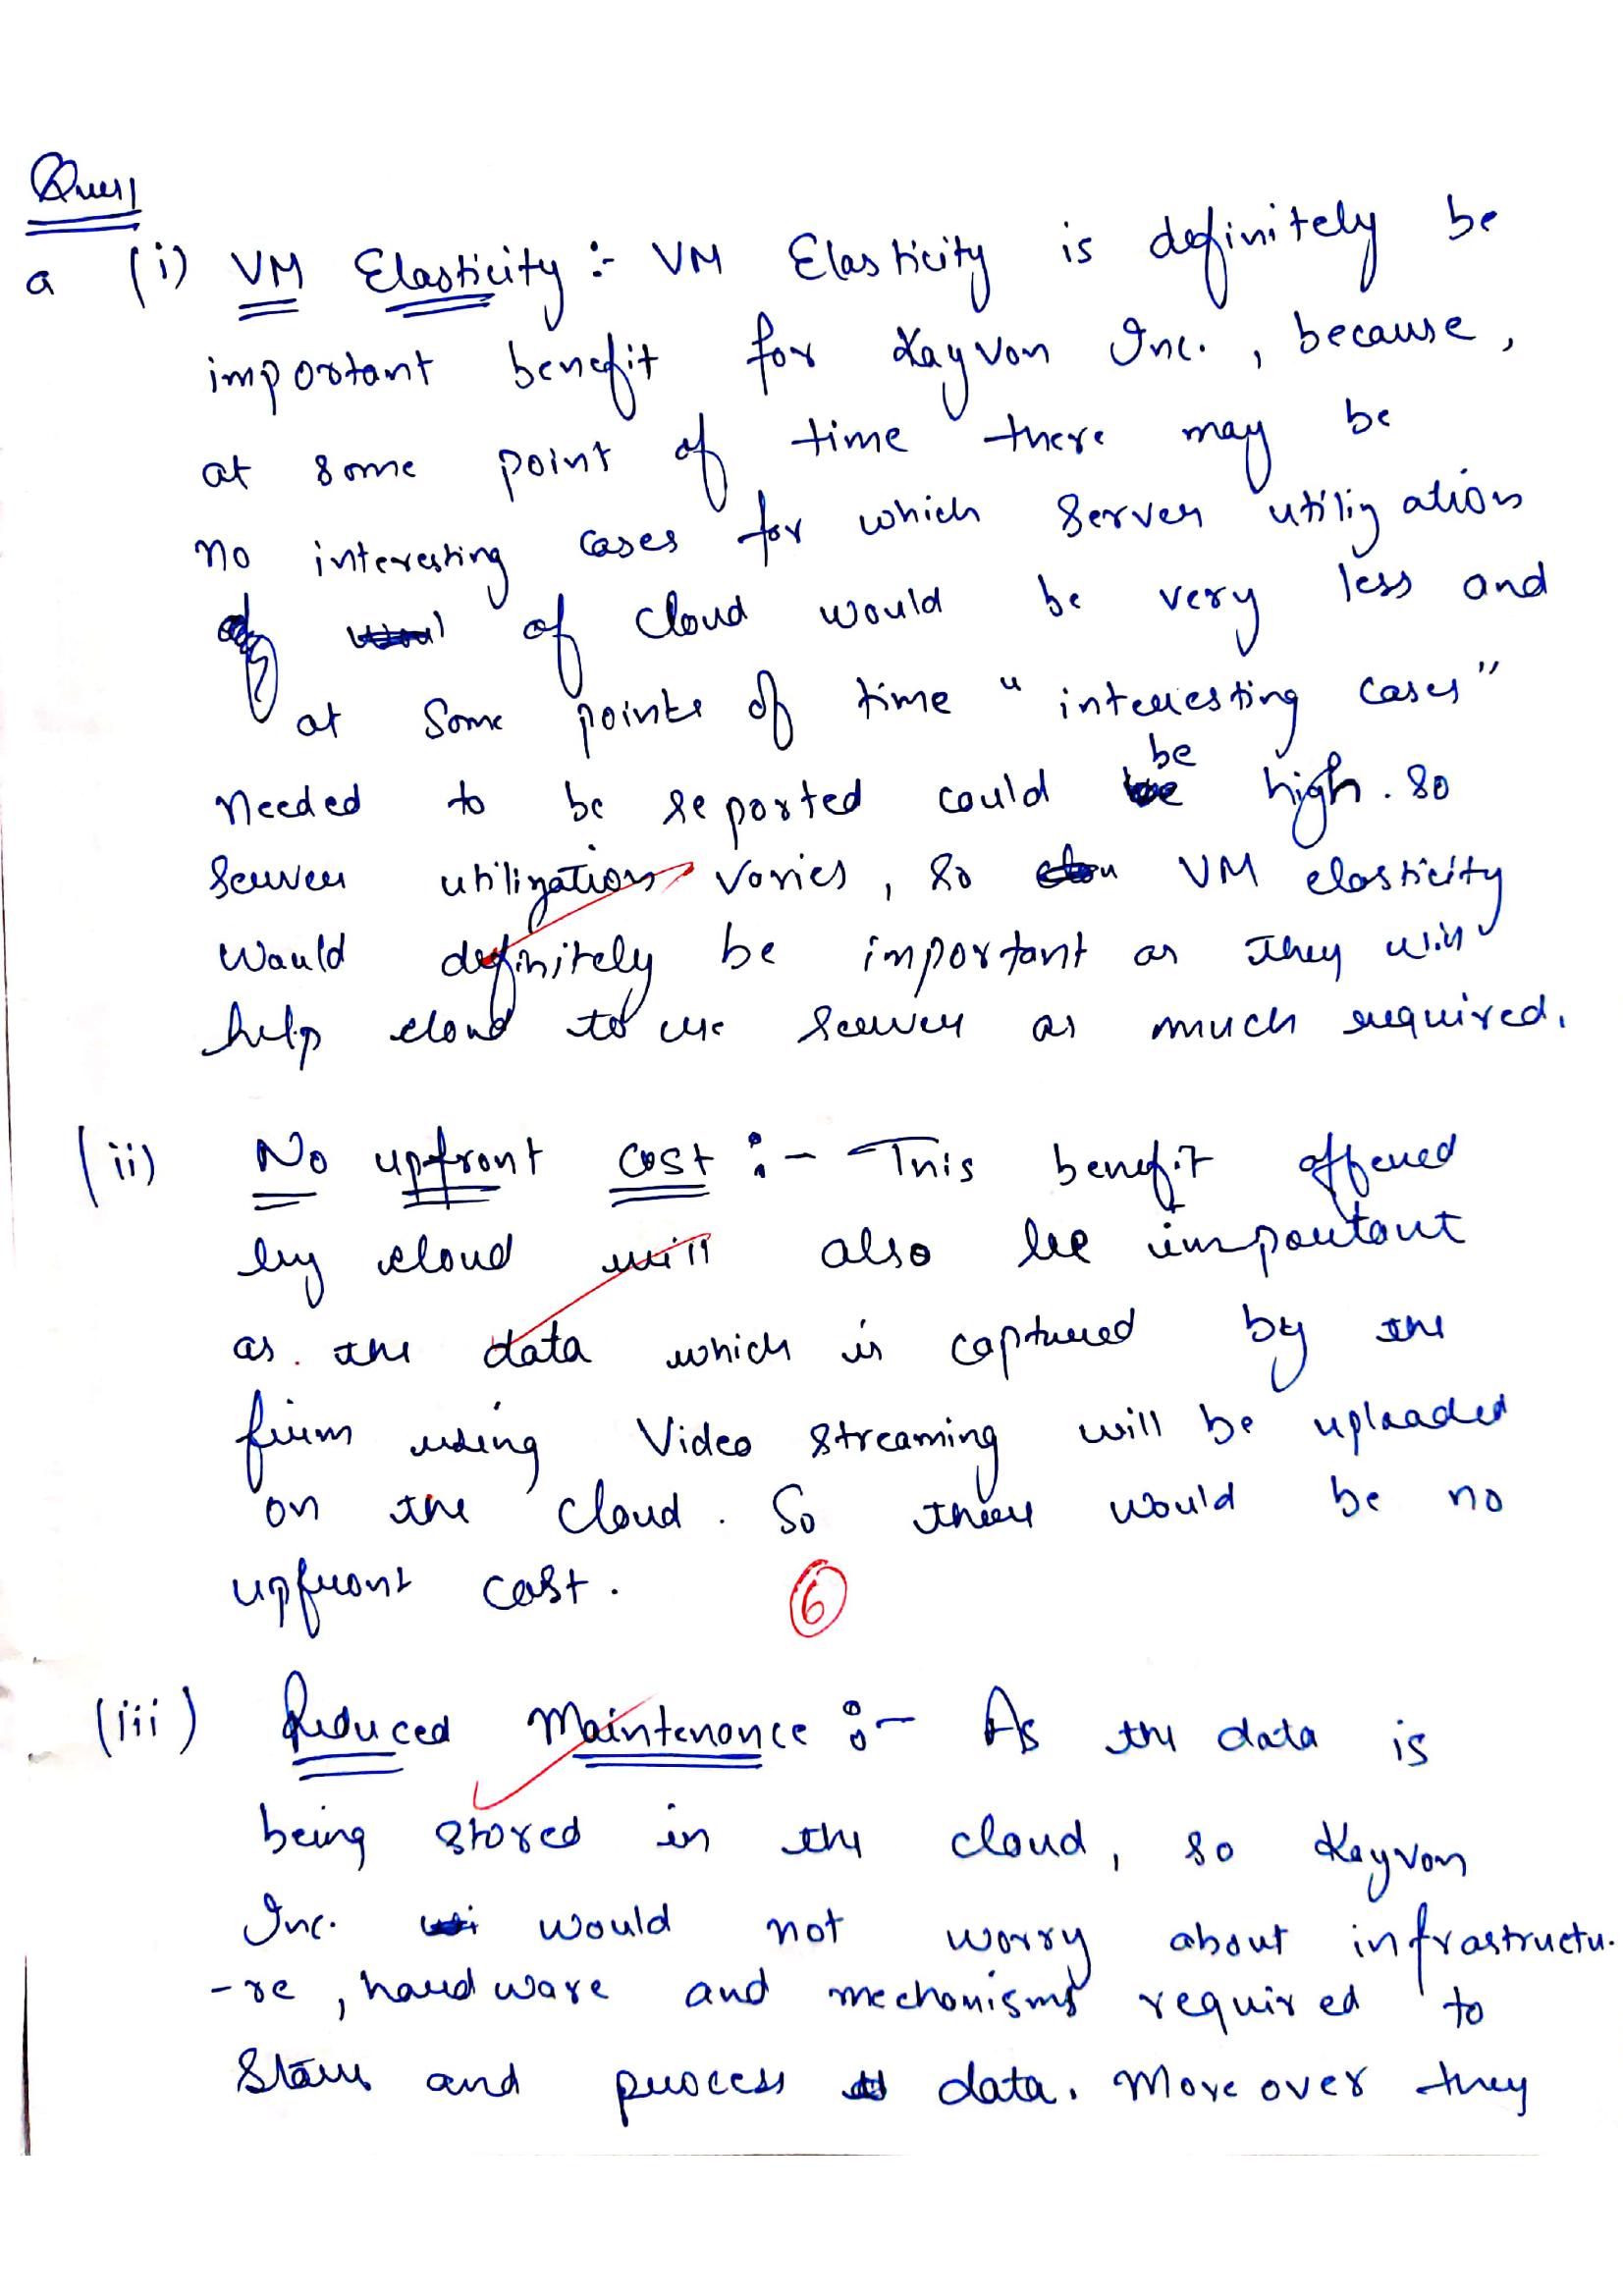 Ques1
a (i) VM Elasticity :- VM Elasticity is definitely be
important benefit for Kayvon Inc. , because ,
at some point of time there may be
no interesting cases for which Server utilization
of cloud would be very less and
at Some points of time "interesting cases"
needed to be reported could be high. So
Server utilization varies , so VM elasticity
would definitely be important as they will
help cloud to use server as much required.
(ii) No upfront cost :- This benefit offered
by cloud will also be important
as the data which is captured by the
firm using Video streaming will be uploaded
on the cloud . So there would be no
upfront cost .
6
(iii) Reduced Maintenance :- As the data is
being stored in the cloud , so Kayvon
Inc. would not worry about infrastructu-
-re , hardware and mechanisms required to
Store and process data. Moreover they